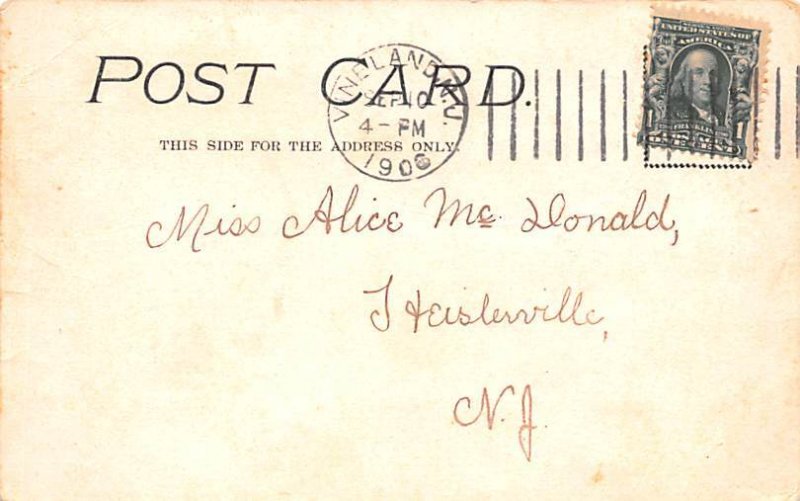 POST CARD.
VINELAND, N.J.
SEP 10
4 - PM
THIS SIDE FOR THE ADDRESS ONLY.
UNITED STATES OF
AMERICA
FRANKLIN
1 1
Miss Alice Mc Donald,
Heislerville,
N.J.